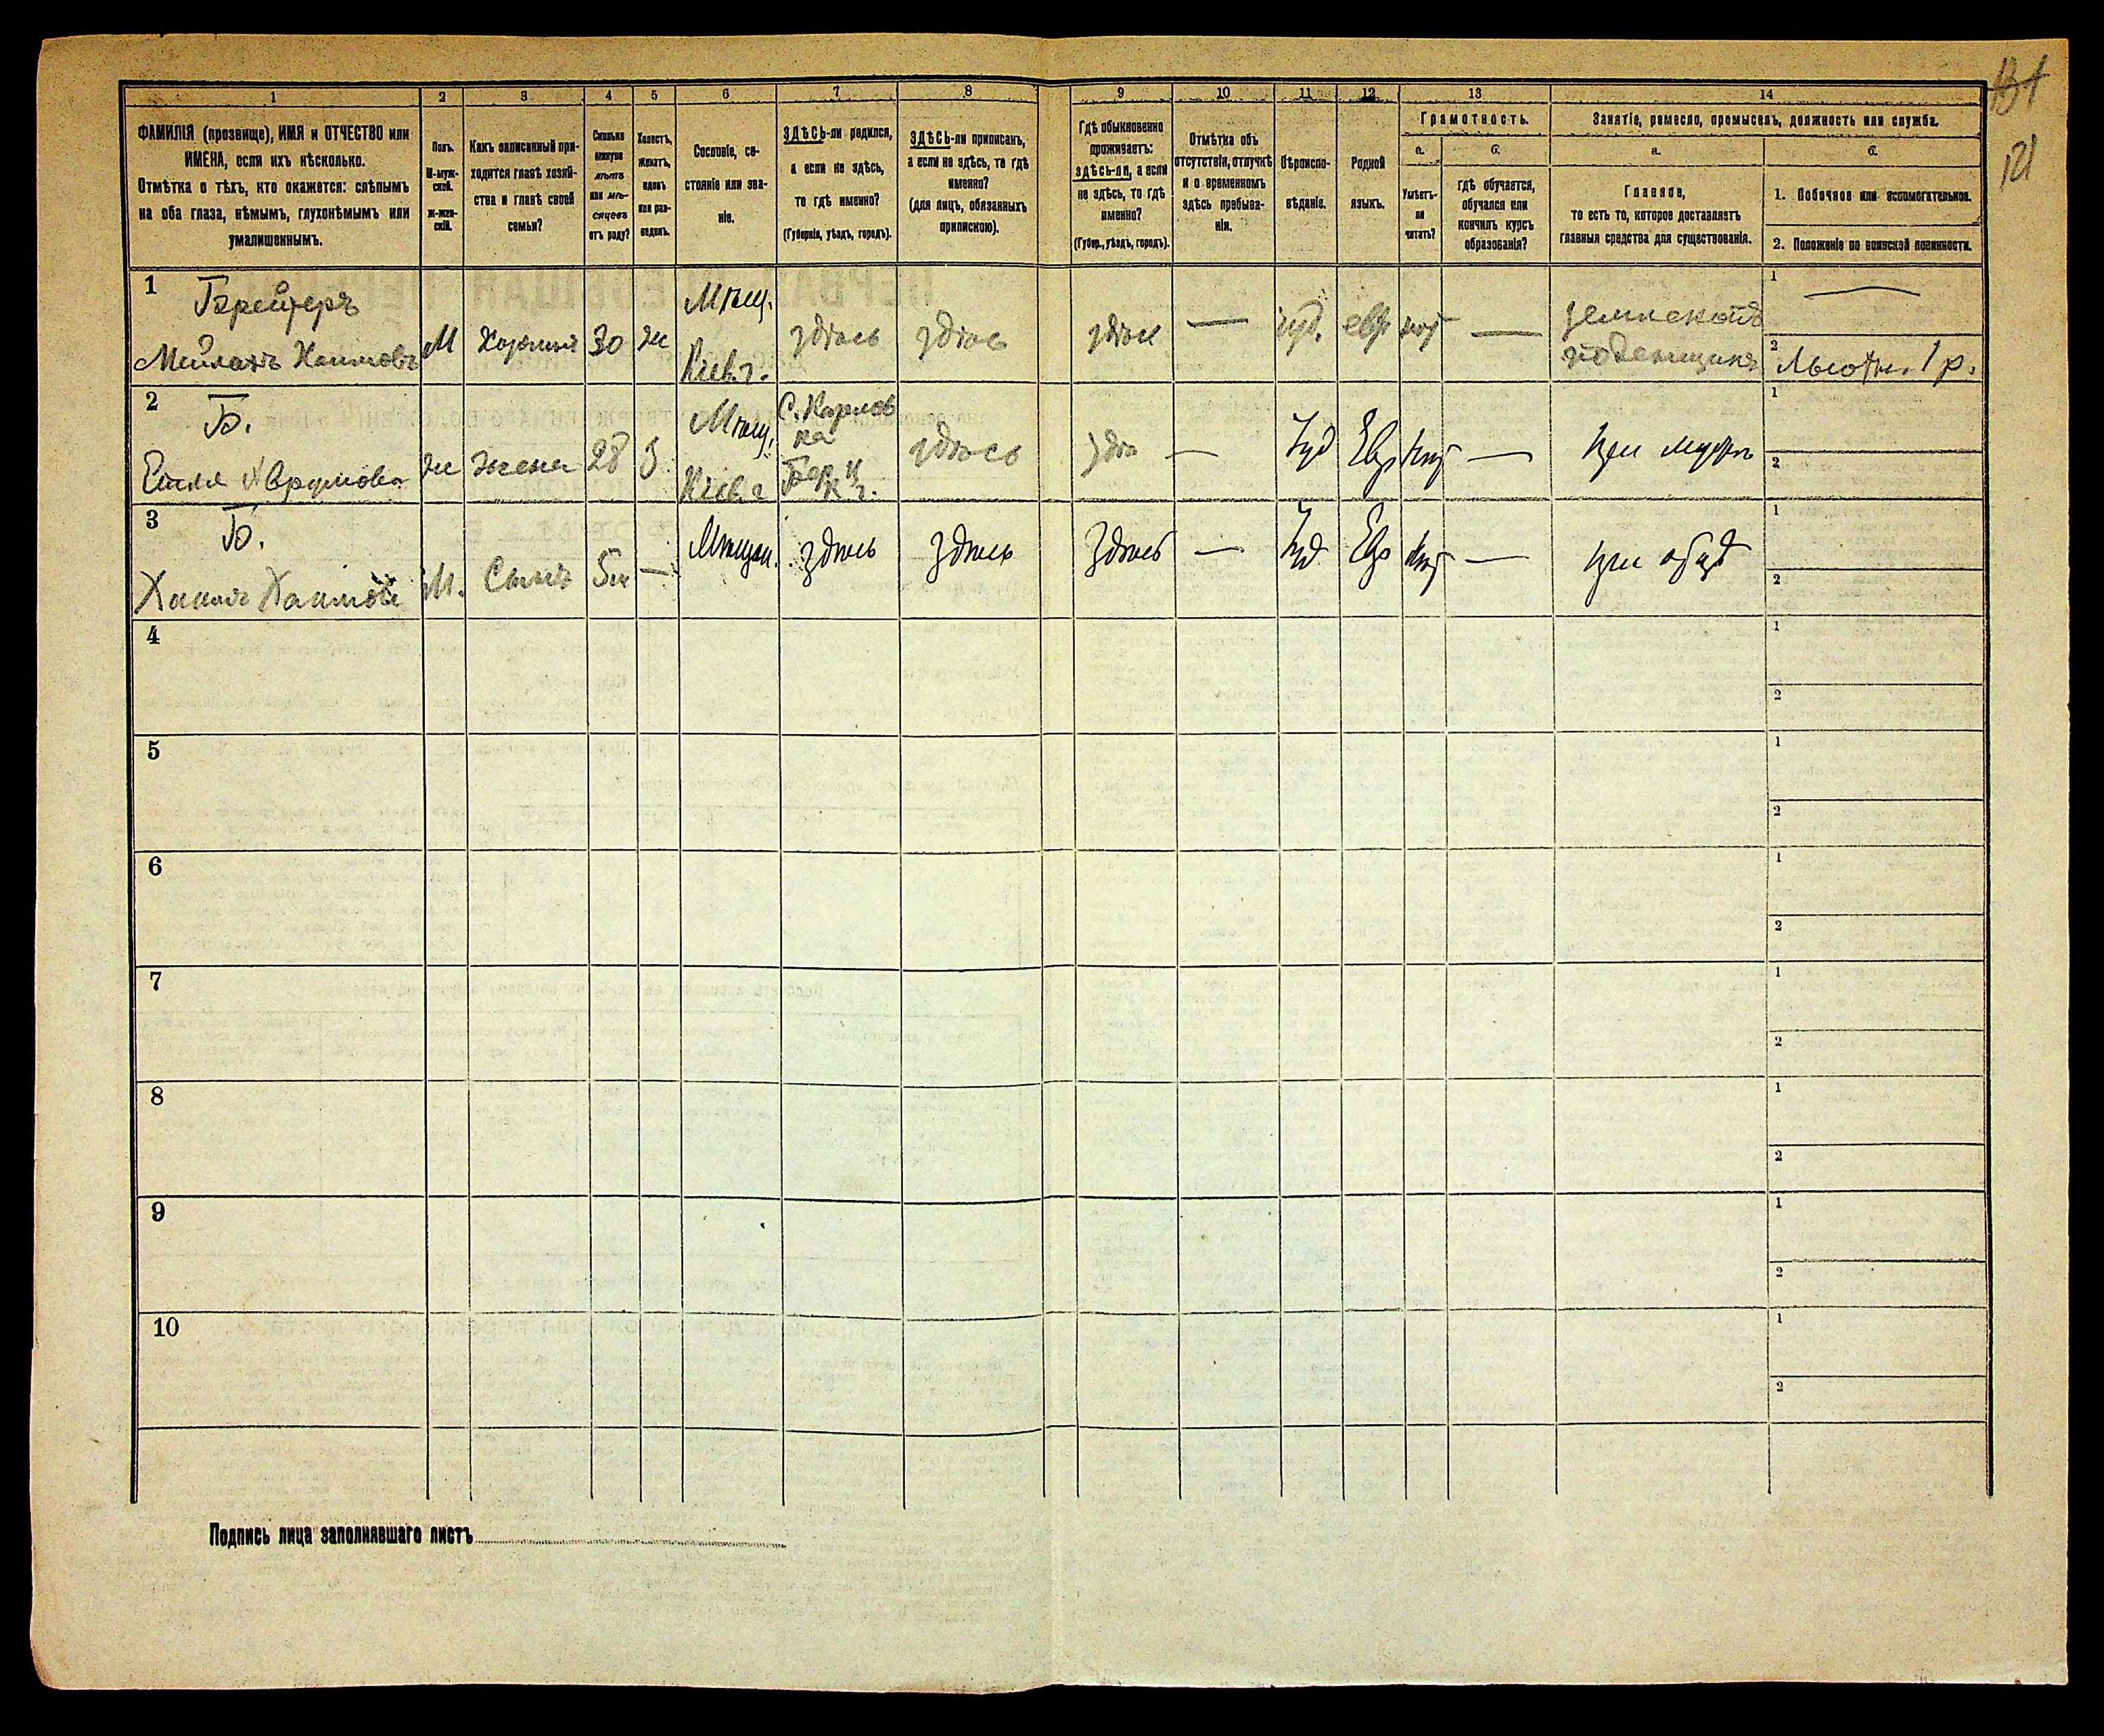 131
121
1 2 3 4 5 6 7 8 9 10 11 12 13 14
ФАМИЛІЯ (прозвище), ИМЯ и ОТЧЕСТВО или
ИМЕНА, если ихъ нѣсколько.
Отмѣтка о тѣхъ, кто окажется: слѣпымъ
на оба глаза, нѣмымъ, глухонѣмымъ или
умалишеннымъ.
Полъ.
М-муж-
ской.
Ж-жен-
скій.
Какъ записанный при-
ходится главѣ хозяй-
ства и главѣ своей
семьи?
Сколько
минуло
лѣтъ
или мѣ-
сяцевъ
отъ роду?
Холостъ,
женатъ,
вдовъ
или раз-
веденъ.
Сословіе, со-
стояніе или зва-
ніе.
ЗДѢСЬ-ли родился,
а если не здѣсь,
то гдѣ именно?
(Губернія, уѣздъ, городъ).
ЗДѢСЬ-ли приписанъ,
а если не здѣсь, то гдѣ
именно?
(для лицъ, обязанныхъ
припискою).
Гдѣ обыкновенно
проживаетъ:
здѣсь-ли, а если
не здѣсь, то гдѣ
именно?
(Губер., уѣздъ, городъ).
Отмѣтка объ
отсутствіи, отлучкѣ
и о временномъ
здѣсь пребыва-
ніи.
Вѣроиспо-
вѣданіе.
Родной
языкъ.
Грамотность.
а.
Умѣетъ-
ли
читать?
б.
гдѣ обучается,
обучался или
кончилъ курсъ
образованія?
Занятіе, ремесло, промыселъ, должность или служба.
а.
Главное,
то есть то, которое доставляетъ
главныя средства для существованія.
б.
1. Побочное или вспомогательное.
2. Положеніе по воинской повинности.
1
Брейтеръ
Мейлахъ Хаимовъ
М
Хозяинъ
30
ж
Мѣщ.
Кіев. г.
здѣсь
здѣсь
здѣсь
—
іуд.
евр
нѣт
—
подѣнщикъ
1
2
Льготн. 1 р.
2
Б.
Аврумова
ж
жена
28
З
Мѣщ.
Кіев. г
С. Карлов
ка
здѣсь
здѣ
—
Іуд
Евр
нѣт
—
при мужѣ
1
2
3
Б.
М.
Сынъ
5м
—
Мѣщан.
здѣсь
Здѣсь
Здѣсь
—
Іуд
Евр
нѣт
—
при отцѣ
1
2
4
1
2
5
1
2
6
1
2
7
1
2
8
1
2
9
1
2
10
1
2
Подпись лица заполнявшаго листъ